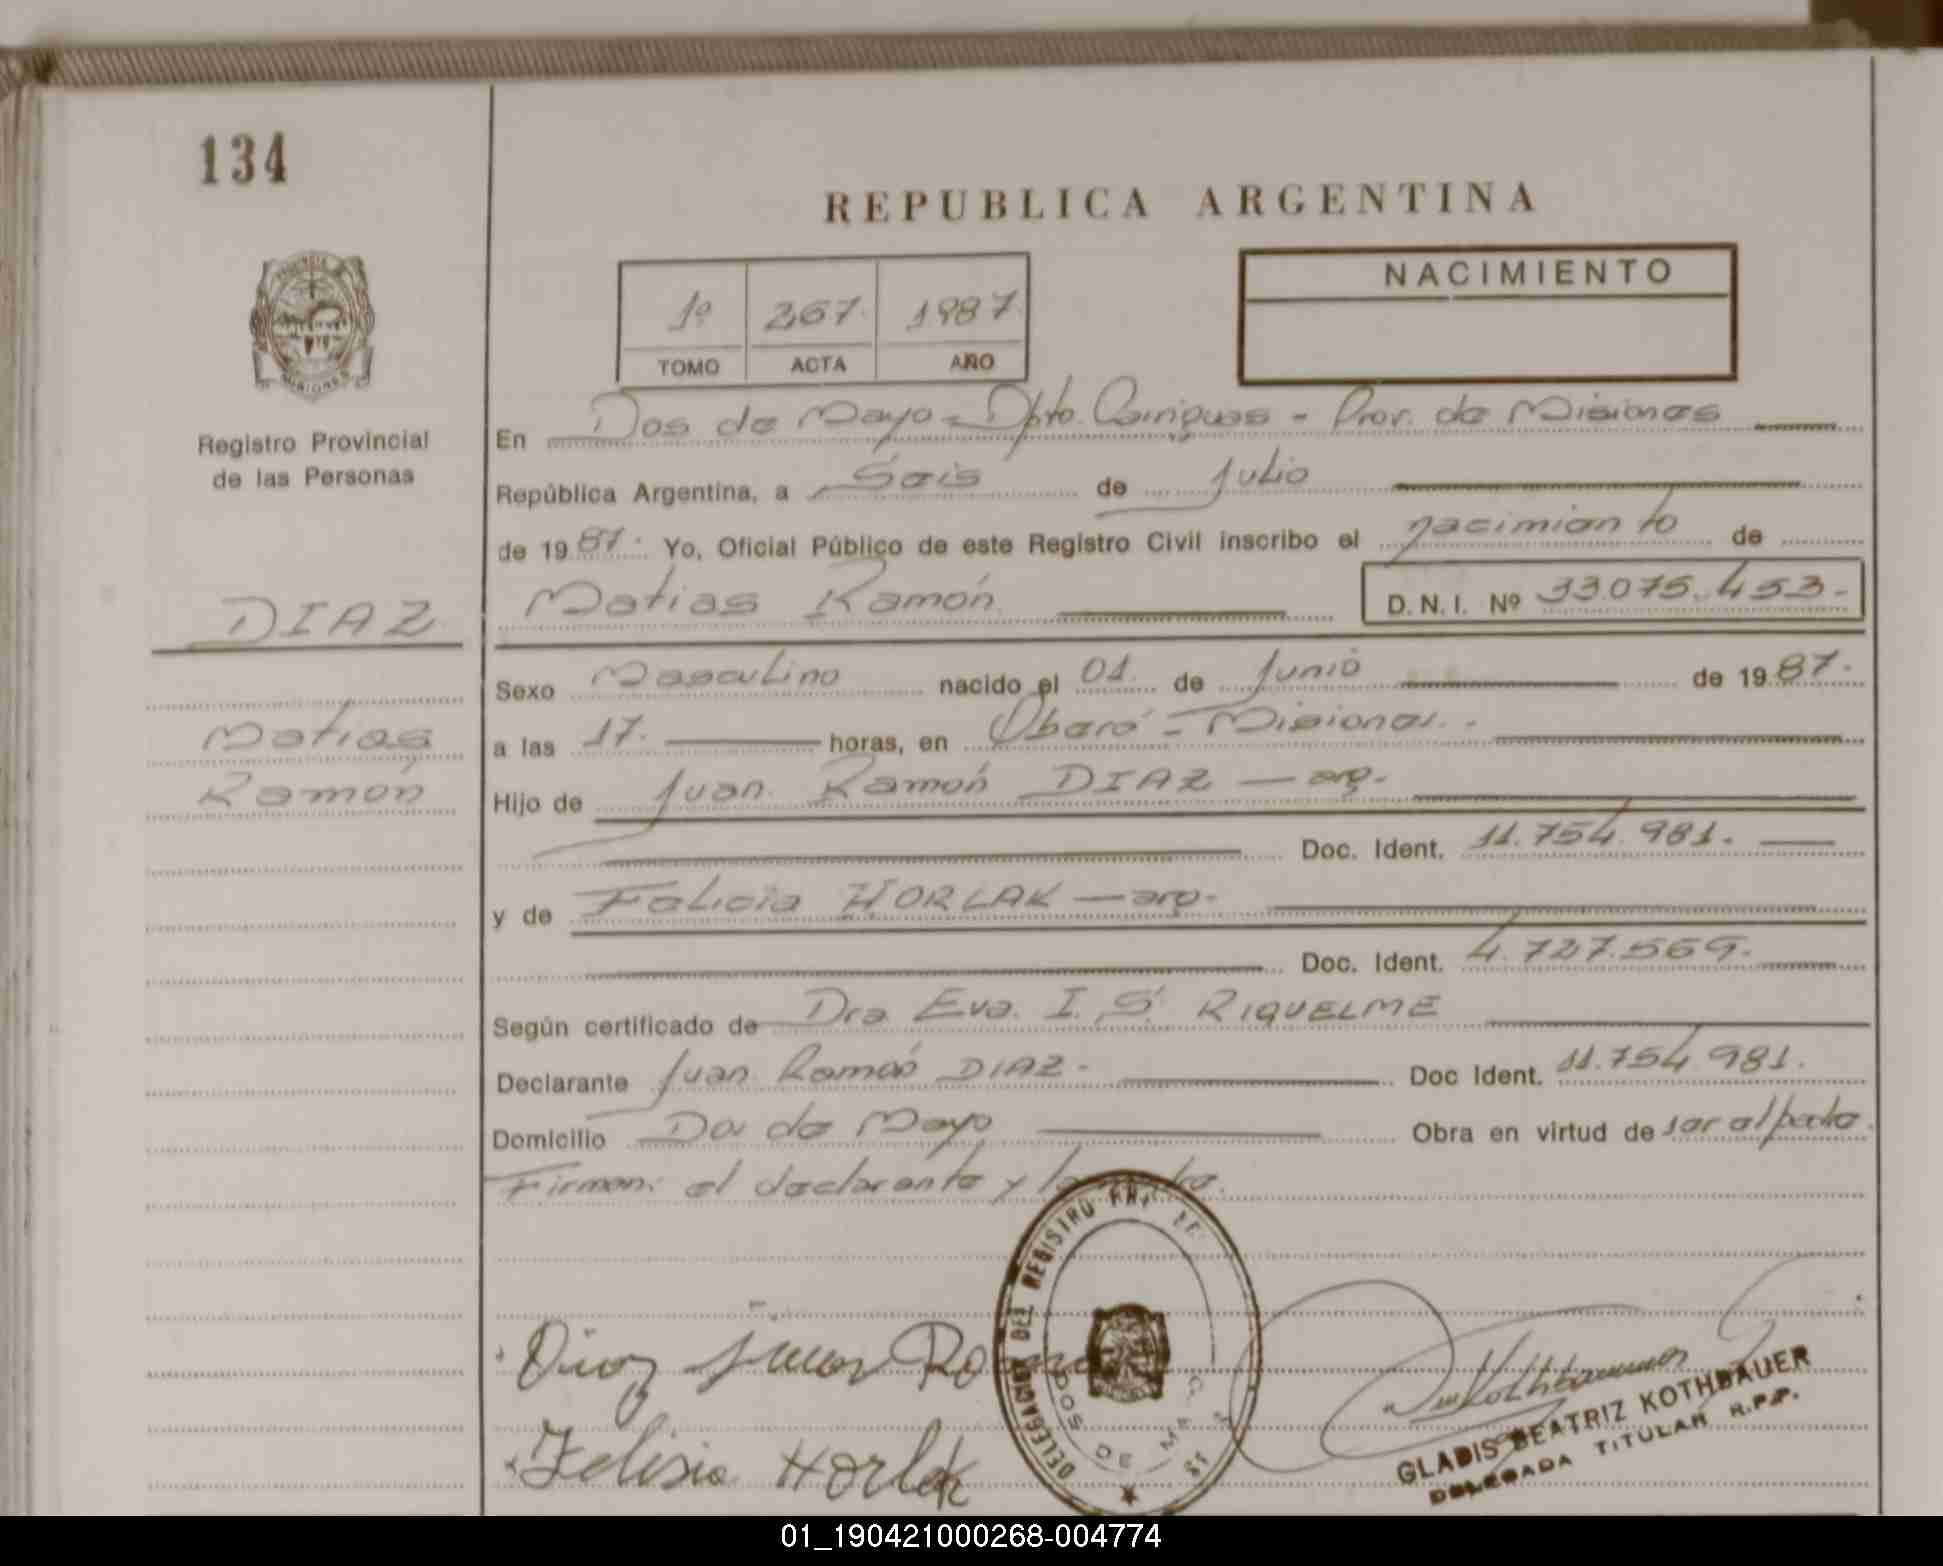 134
REPUBLICA ARGENTINA
1º 267 1987
TOMO ACTA AÑO
NACIMIENTO
Registro Provincial
de las Personas
En Dos de Mayo - Dpto. Cainguas - Prov. de Misiones
República Argentina, a Seis de Julio
de 1987. Yo, Oficial Público de este Registro Civil inscribo el nacimiento de
DIAZ
Matias Ramón D.N.I. Nº 33.075.453.-
Matias
Ramón
Sexo Masculino nacido el 01. de Junio de 1987.
a las 17. horas, en Oberá - Misiones.-
Hijo de Juan Ramón DIAZ — arg.
Doc. Ident. 11.754.981.
y de Felicia HORLAK — arg.
Doc. Ident. 4.727.569.
Según certificado de Dra Eva. I. S. RIQUELME
Declarante Juan Ramón DIAZ.- Doc Ident. 11.754.981.
Domicilio Dos de Mayo Obra en virtud de ser el padre.
Firman: el declarante y la
DELEGACION DEL REGISTRO
DOS DE MAYO
Diaz Juan Ramon
Felisia Horlak
GLADIS BEATRIZ KOTHBAUER
DELEGADA TITULAR R.P.P.
01_190421000268-004774